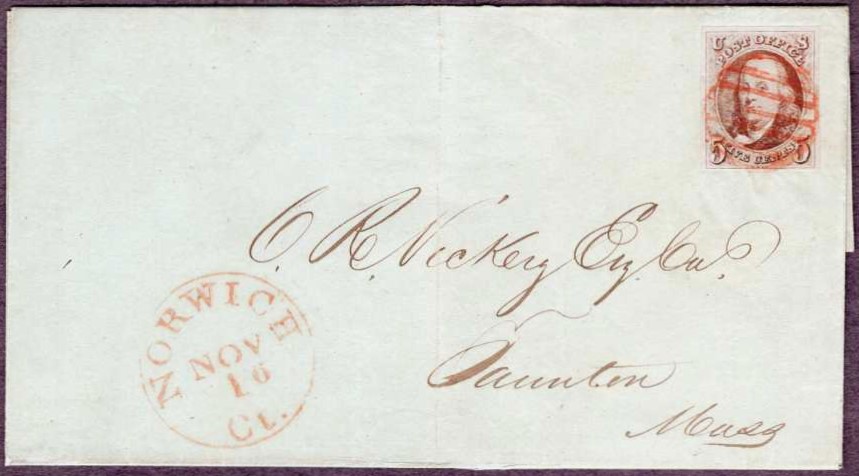 U S
POST OFFICE
FIVE CENTS
5 5
C. R. Vickery Esq Cas.
Taunton
Mass
NORWICH
NOV
16
Ct.